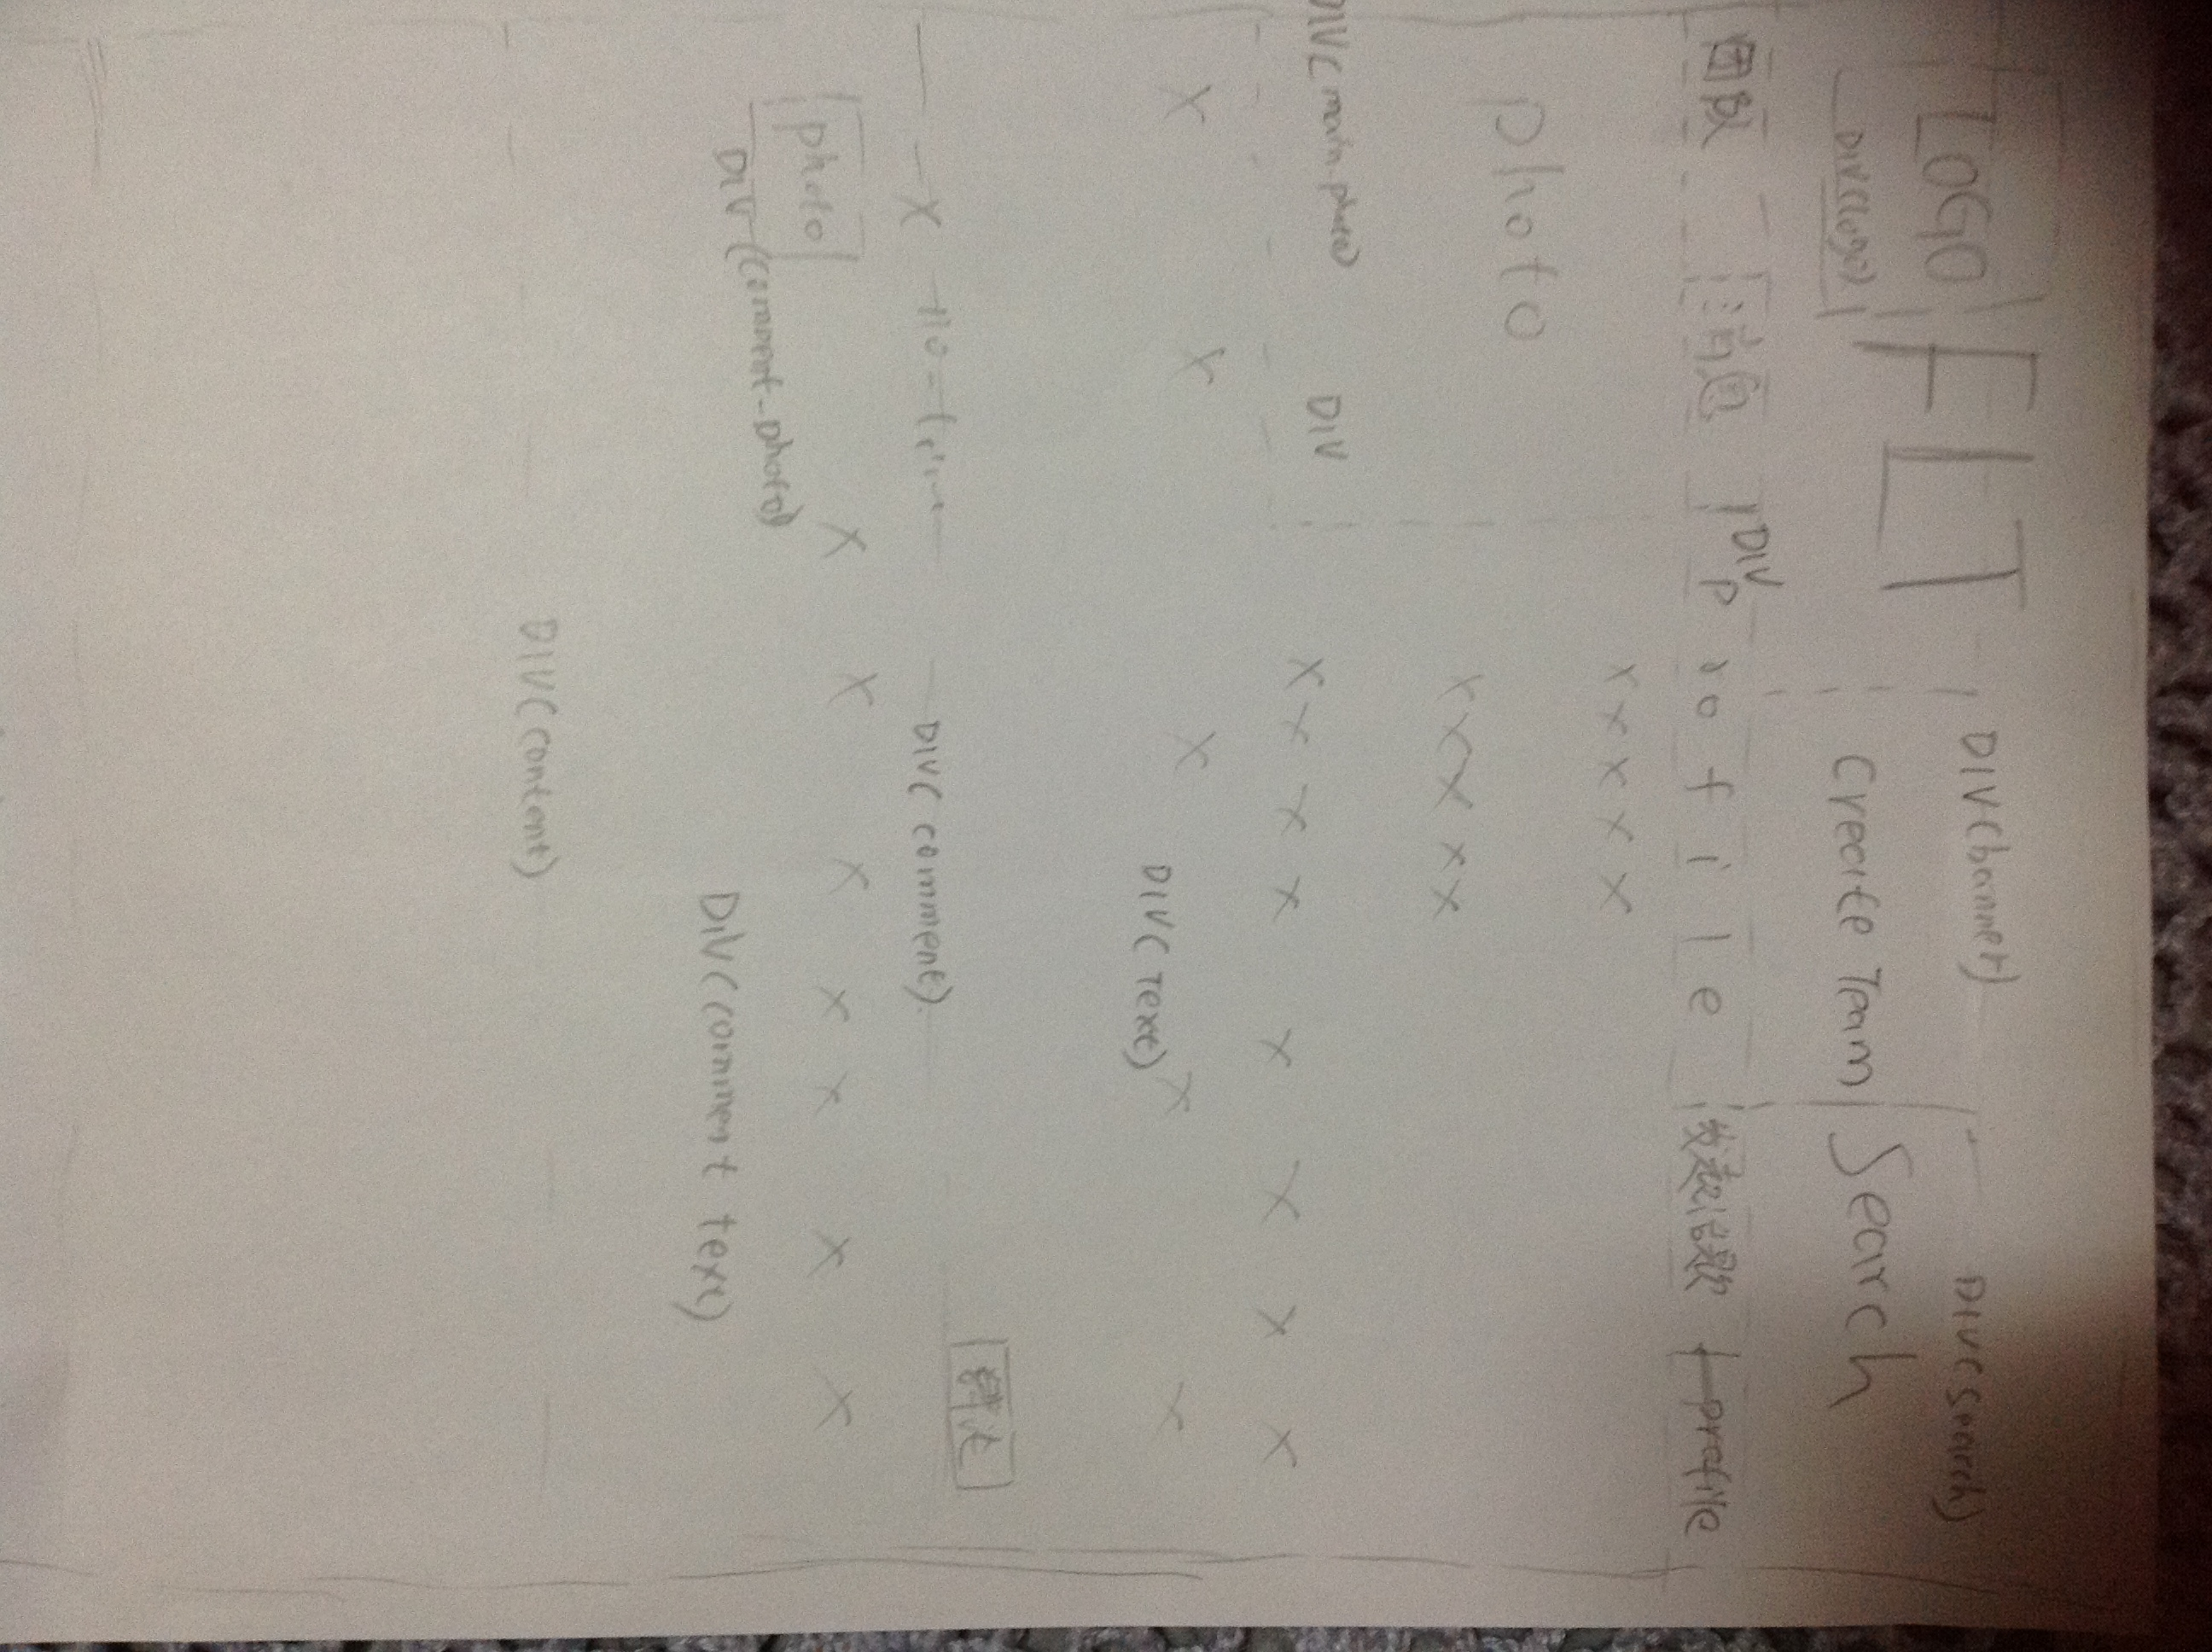 LOGO FLT DIV(banner) DIV(search)
DIV(logo) Create Team Search
团队 消息 DIV profile 发起话题 profile
x x x x x
photo
x x x x x
DIV(main-photo) DIV
x x x x x x x x
x x x x x
DIV(Text)
x DIV(comment)
photo x x x x x x x
DIV(comment-photo)
DIV(comment text)
DIV(content)